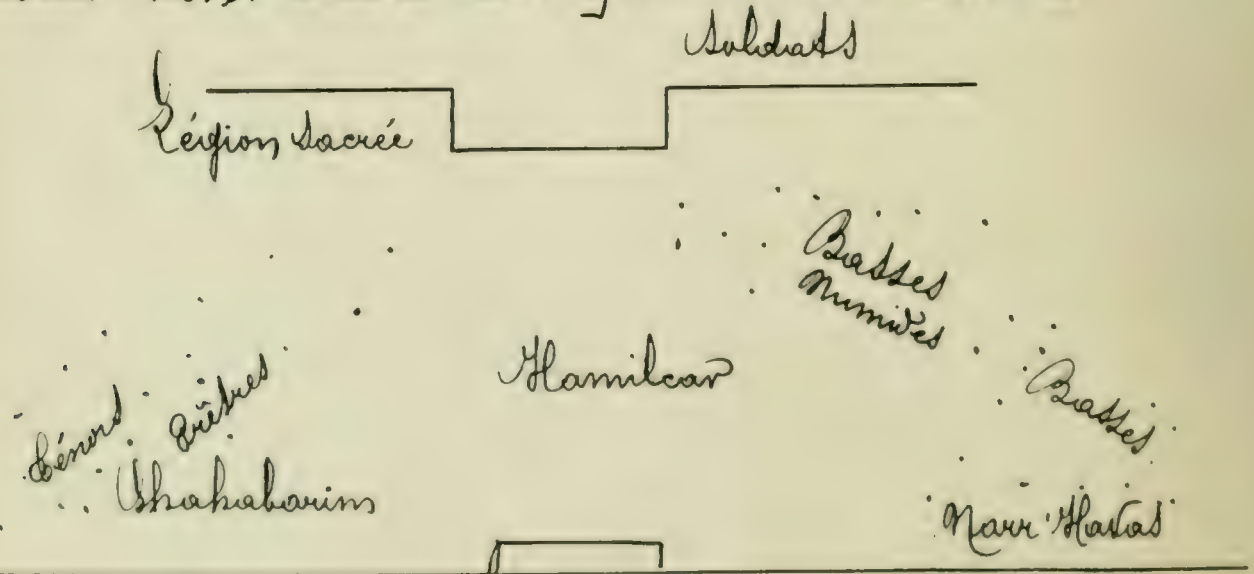 Soldats
Légion Sacrée
Basses
Numides
Hamilcar
Basses
Ténors
Prêtres
Shahabarim
Narr'Havas